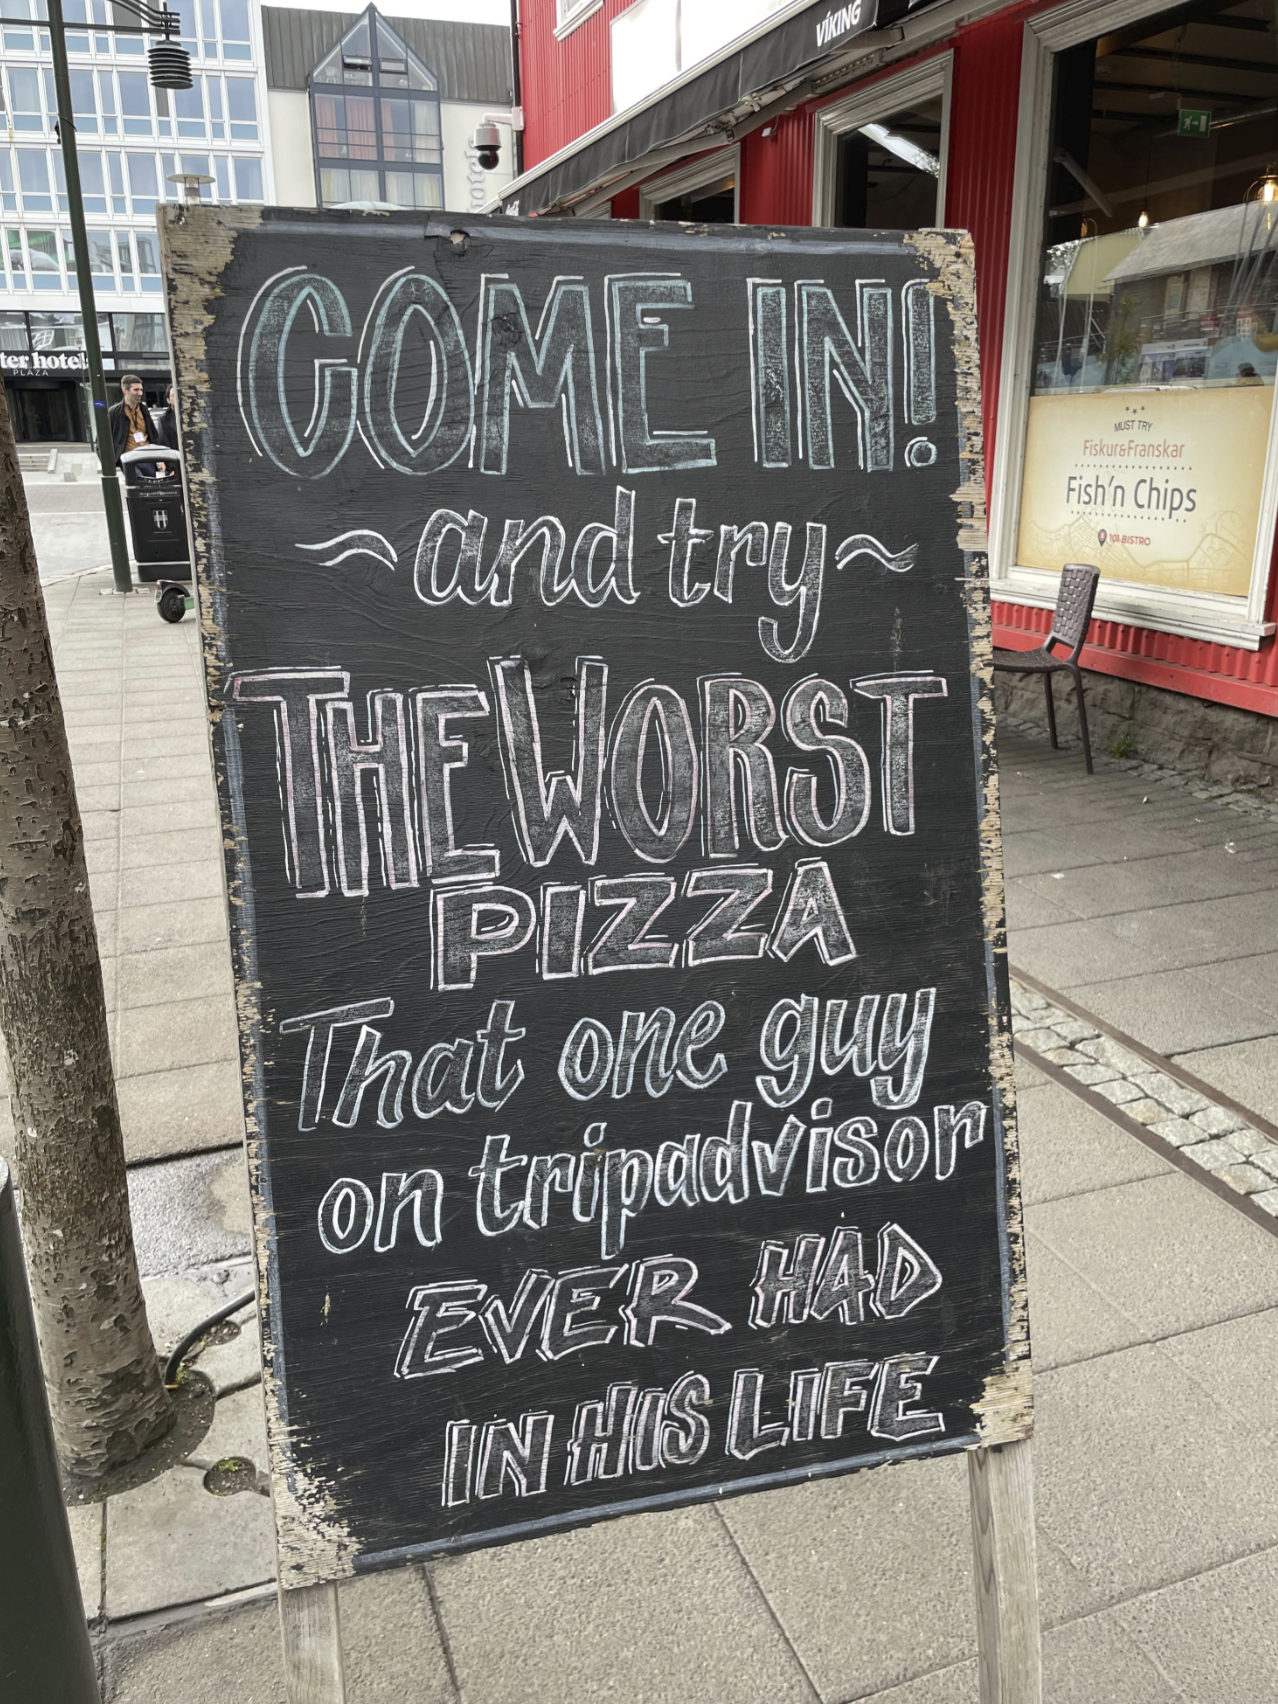 VÍKING
COME IN!
~and try~
THE WORST
PIZZA
That one guy
on tripadvisor
EVER HAD
IN HIS LIFE
ter hotel
PLAZA
MUST TRY
Fiskur&Franskar
Fish'n Chips
101 BISTRO